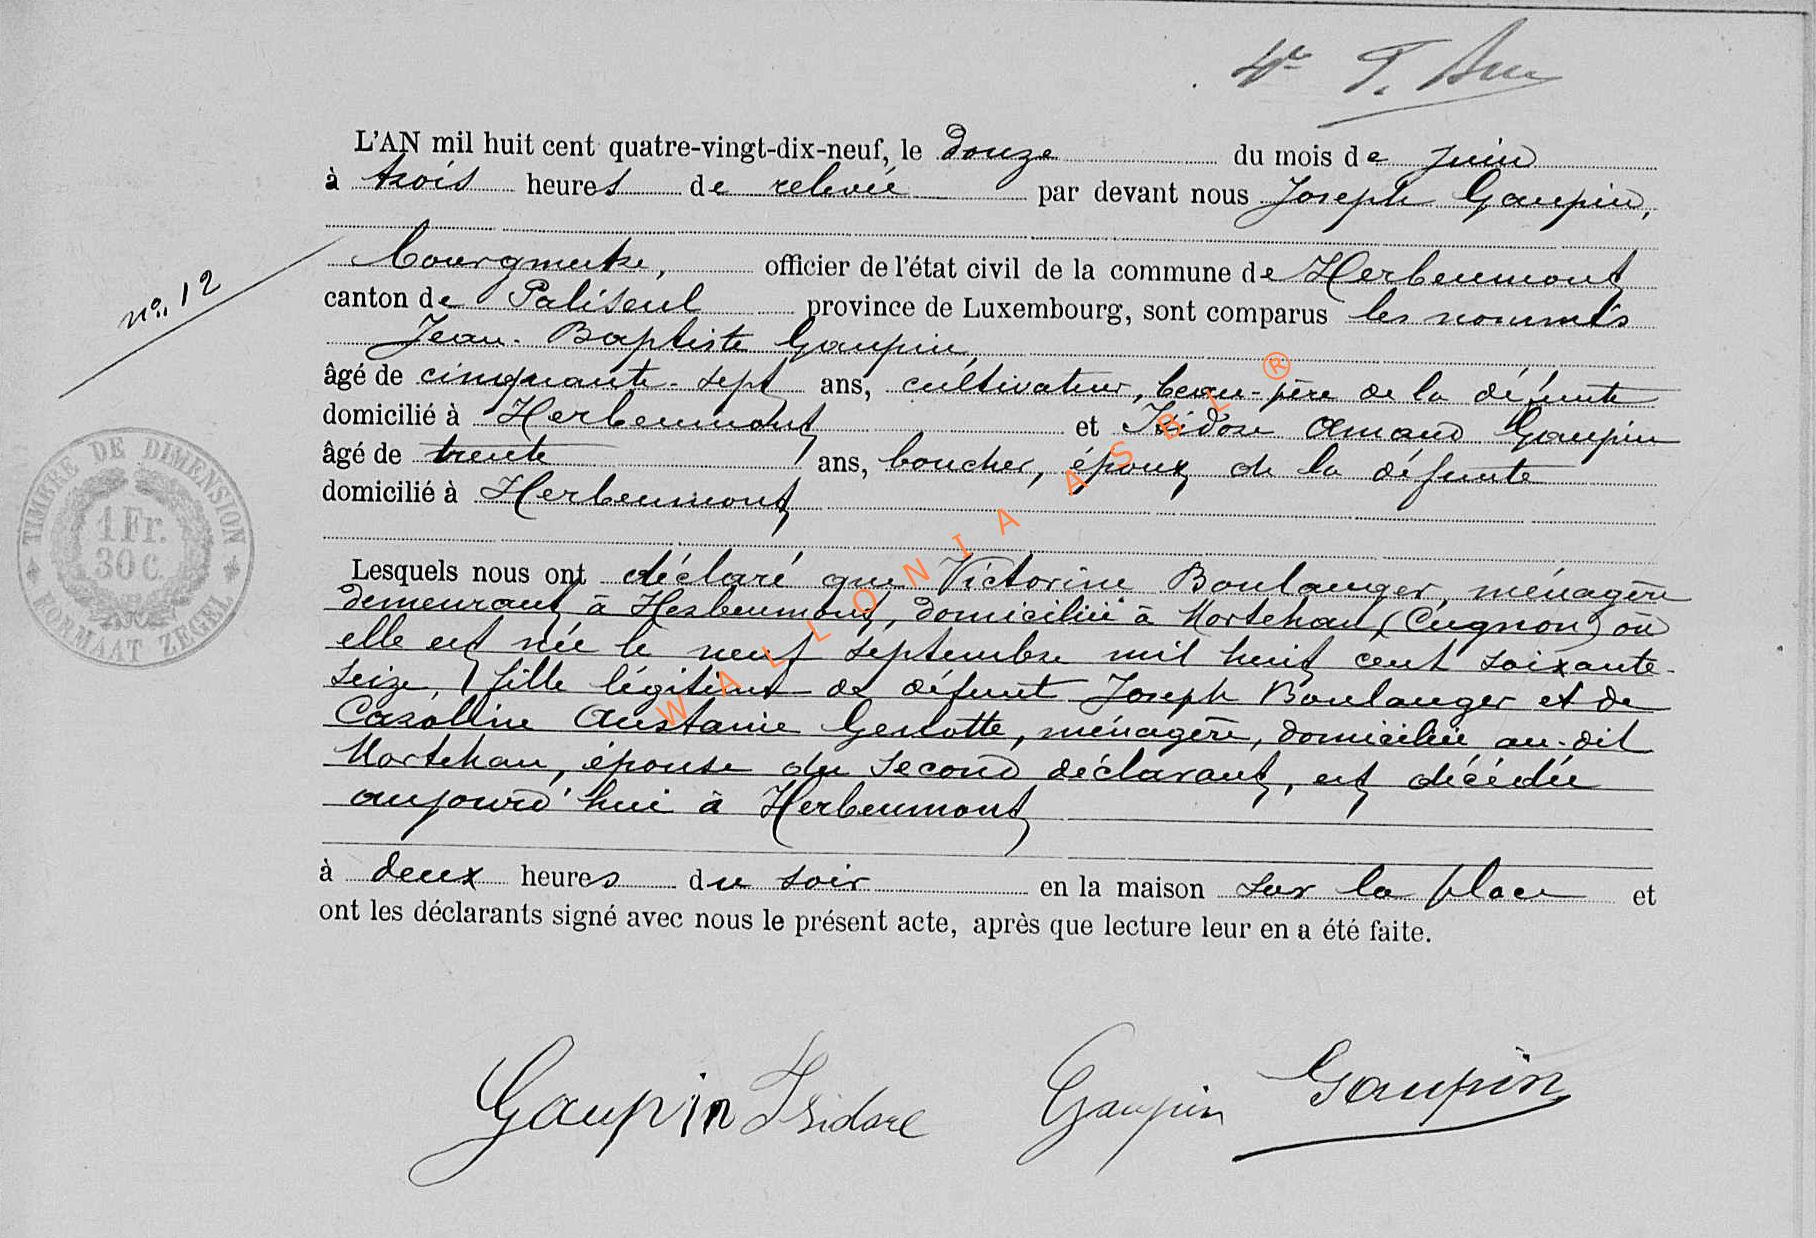 4e
L'AN mil huit cent quatre-vingt-dix-neuf, le douze du mois de juin
à trois heures de relevée par devant nous Joseph Gaupin,
bourgmestre, officier de l'état civil de la commune de Herbeumont
n° 12
canton de Paliseul province de Luxembourg, sont comparus les nommés
Jean-Baptiste Gaupin,
âgé de cinquante-sept ans, cultivateur, beau-père de la défunte
domicilié à Herbeumont et Isidore Amand Gaupin
âgé de trente ans, boucher, époux de la défunte
domicilié à Herbeumont
TIMBRE DE DIMENSION
1 Fr.
30 C.
FORMAAT ZEGEL
Lesquels nous ont déclaré que Victorine Boulanger, ménagère
demeurant à Herbeumont, domiciliée à Mortehan (Cugnon) où
elle est née le neuf septembre mil huit cent soixante-
seize, fille légitime de défunt Joseph Boulanger et de
Caroline Austanie Gerlotte, ménagère, domiciliée au-dit
Mortehan, épouse du second déclarant, est décédée
aujourd'hui à Herbeumont
à deux heures du soir en la maison sur la place et
ont les déclarants signé avec nous le présent acte, après que lecture leur en a été faite.
Gaupin Isidore Gaupin Gaupin
WALLONIA ASBL ®